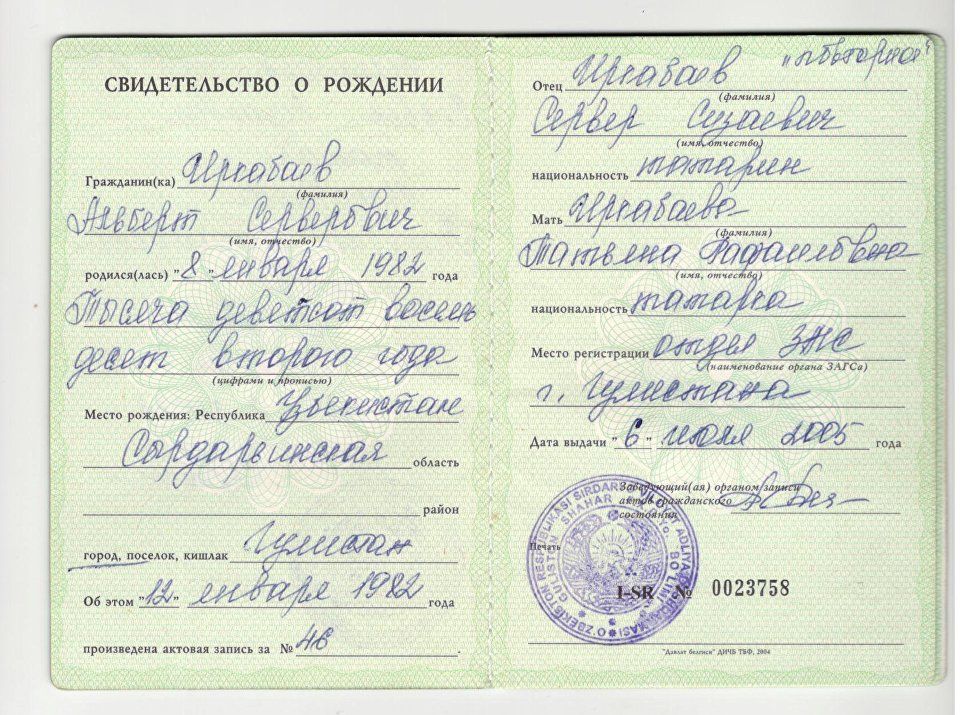 СВИДЕТЕЛЬСТВО О РОЖДЕНИИ
Гражданин(ка) Иркабаев
(фамилия)
Альберт Серверович
(имя, отчество)
родился(лась) "8" января 1982 года
Тысяча девятсот восемь
десят второго года
(цифрами и прописью)
Место рождения: Республика Узбекистан
Сырдарьинская область
район
город, поселок, кишлак Гулистан
Об этом "12" января 1982 года
произведена актовая запись за № 46
"повторное"
Отец Иркабаев
(фамилия)
Сервер
(имя, отчество)
национальность татарин
Мать Иркабаева
(фамилия)
Татьяна Рафаиловна
(имя, отчество)
национальность татарка
Место регистрации отдел ЗАГС
(наименование органа ЗАГСа)
г. Гулистана
Дата выдачи "6" июля 2005 года
Заведующий(ая) органом записи
актов гражданского
состояния
Печать
I-SR № 0023758
"Давлат белгиси" ДИЧБ ТБФ, 2004